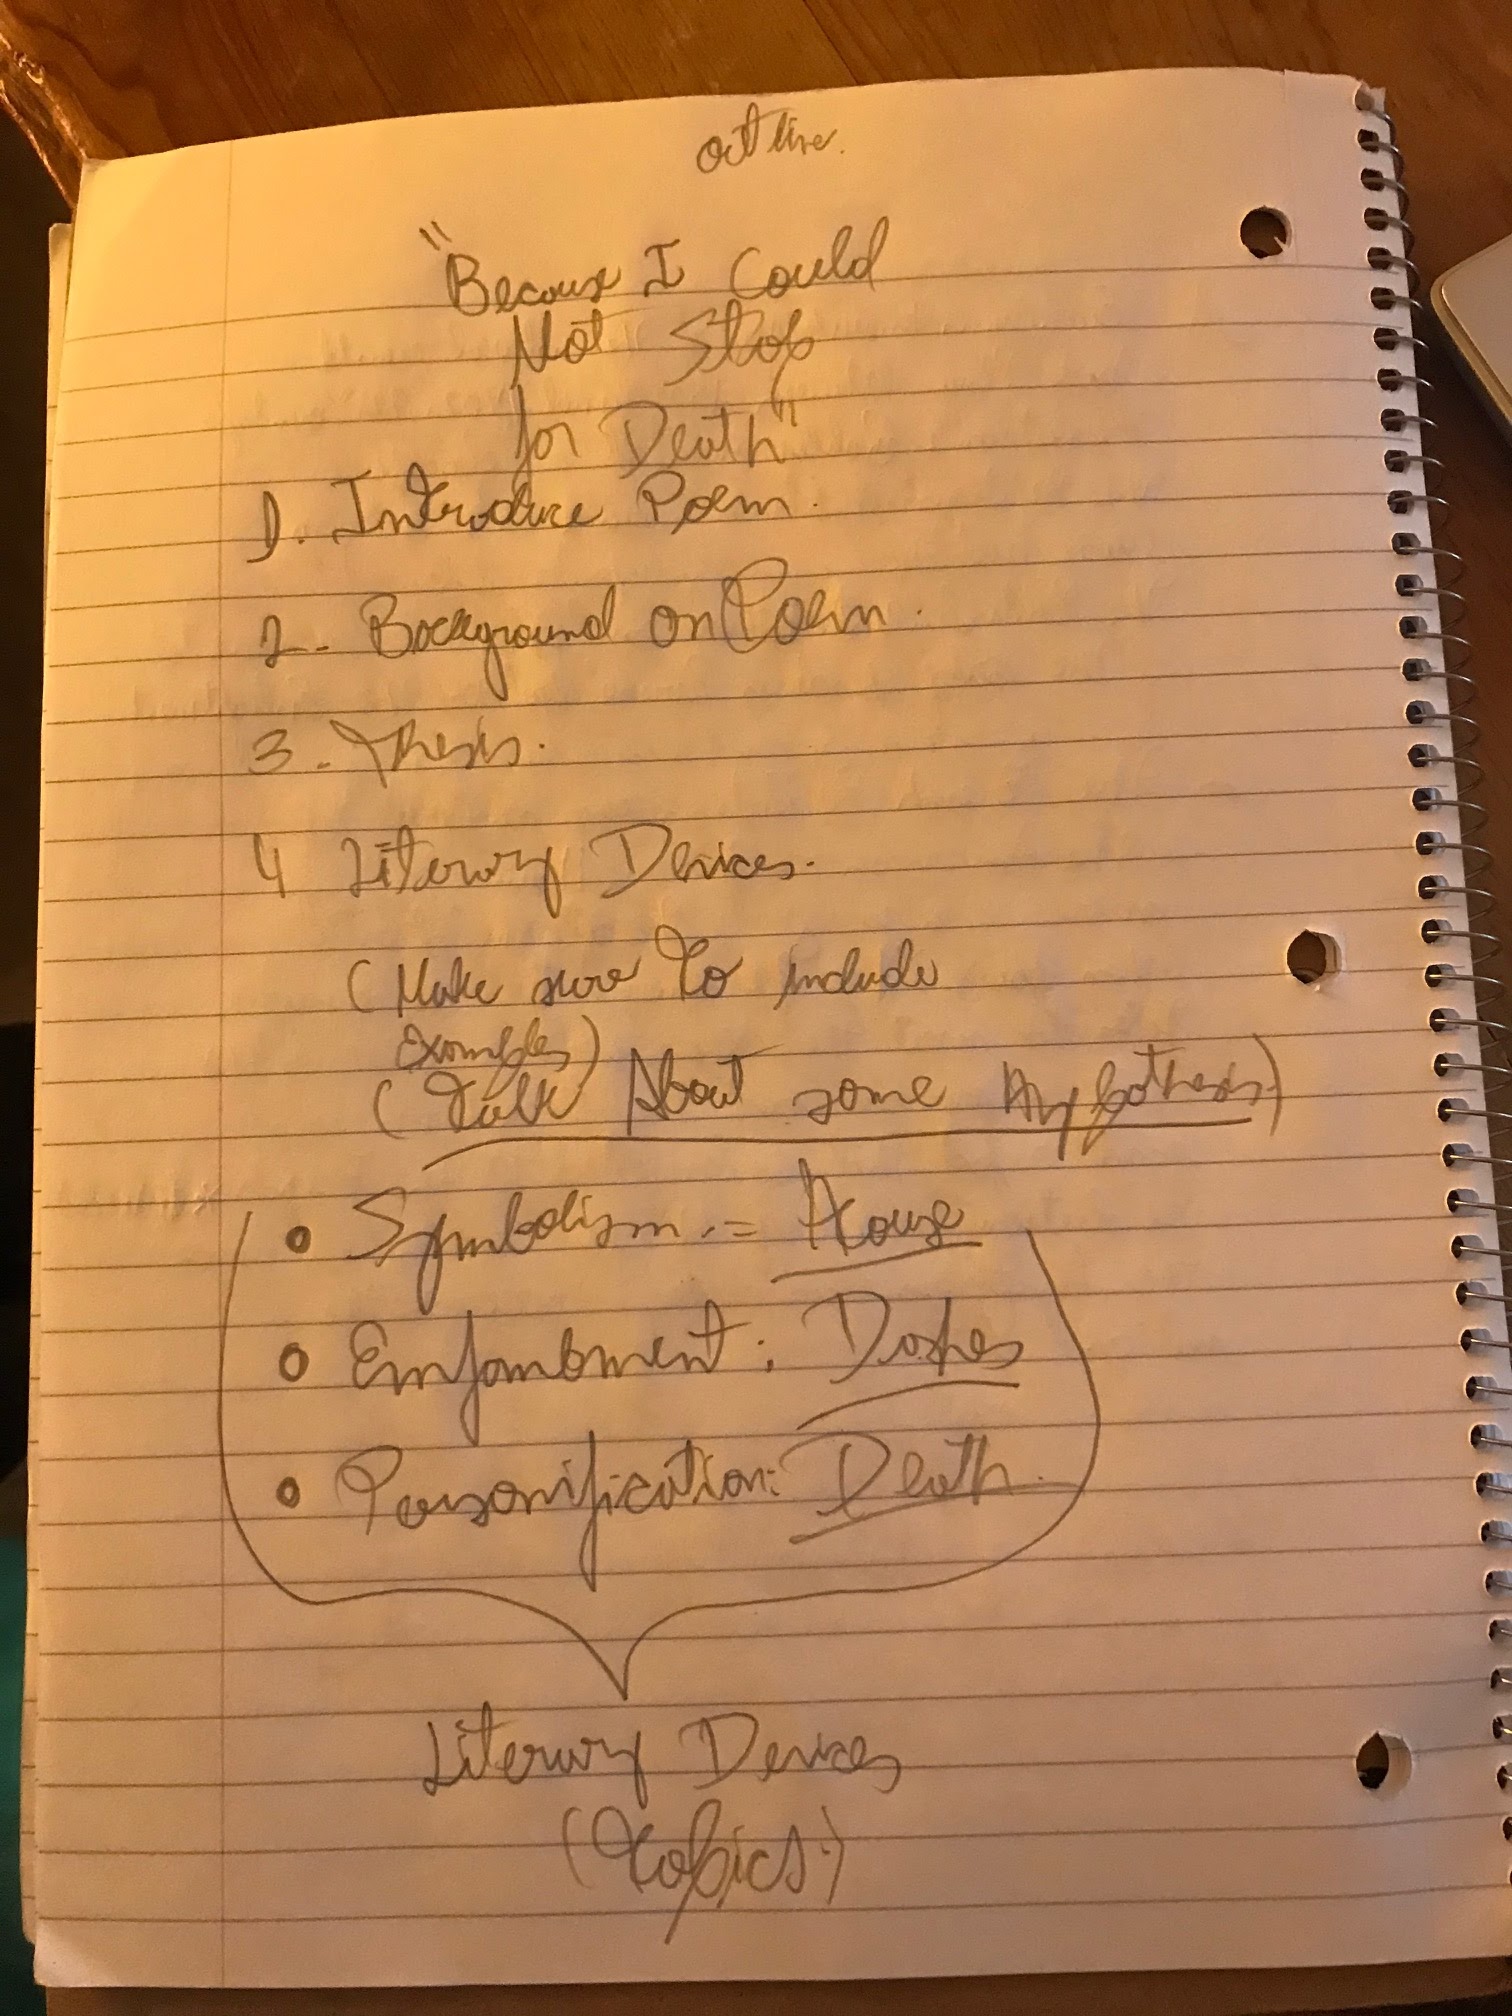 outline.
"Because I Could
Not Stop
for Death"
1. Introduce Poem.
2- Background on Poem.
3. Thesis.
4 Literary Devices.
(Make sure to include
examples)
(Talk About some Hypothesis)
• Symbolism := House
• Enjambment: Dashes
• Personification: Death.
Literary Devices
(Topics.)